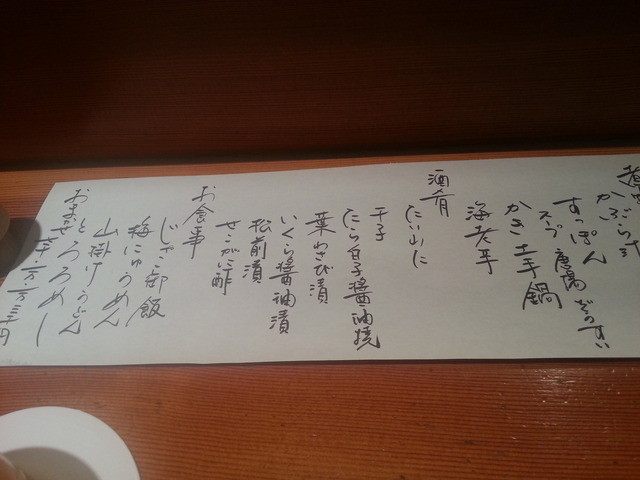 かぶら汁
すっぽん
スープ 唐揚 ぞうすい
かき土手鍋
海老芋
酒肴
たい山に
干子
たら白子醤油焼
葉わさび漬
いくら醤油漬
松前漬
せこがに酢
お食事
じゃこ御飯
梅にゅうめん
山掛けうどん
とろろめし